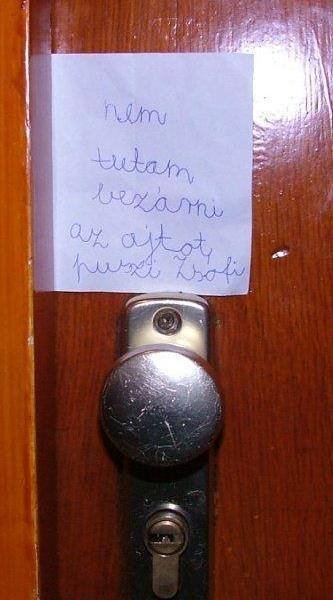 nem
tutam
bezárni
az ajtot,
puszi Zsofi